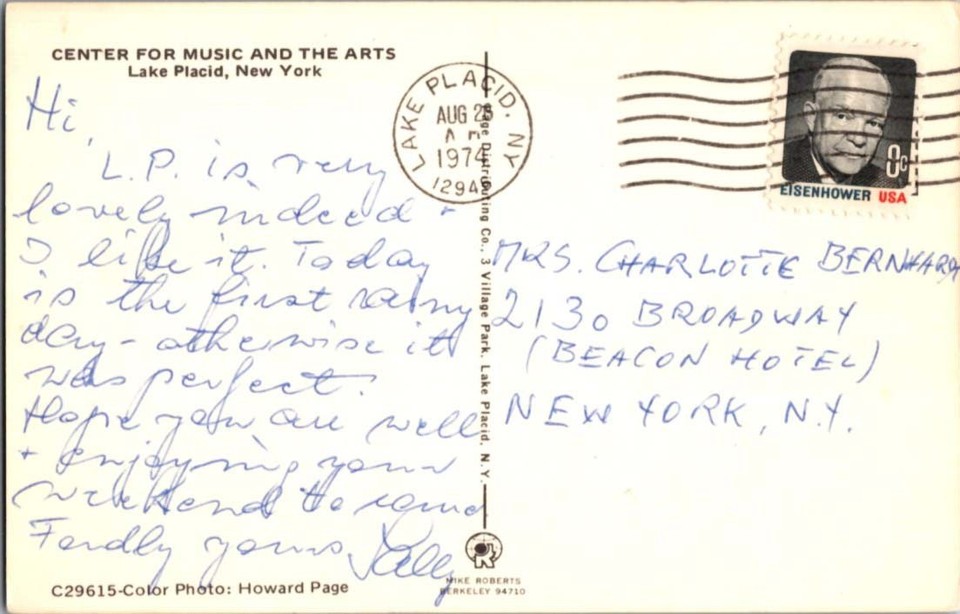 CENTER FOR MUSIC AND THE ARTS
Lake Placid, New York
Hi,
L.P. is very
lovely indeed -
I like it. Today
is the first rainy
day - otherwise it
was perfect.
Hope you are well
+ enjoying your
weekend
Fondly yours, Sally
C29615-Color Photo: Howard Page
LAKE PLACID, NY
AUG 25
1974
1294
Page Distributing Co., 3 Village Park, Lake Placid, N.Y.
MIKE ROBERTS
BERKELEY 94710
8c
EISENHOWER USA
MRS. CHARLOTTE BERNHARD
2130 BROADWAY
(BEACON HOTEL)
NEW YORK, N.Y.